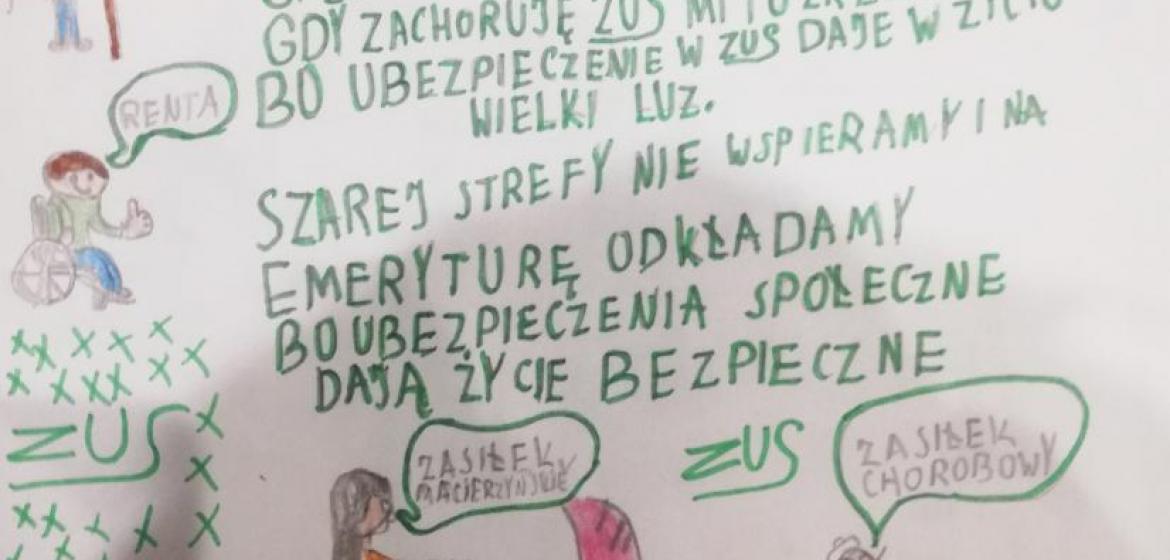 GDY ZACHORUJĘ ZUS MI TO
RENTA
BO UBEZPIECZENIE W ZUS DAJE W ŻYCIU
WIELKI LUZ.
SZAREJ STREFY NIE WSPIERAMY I NA
EMERYTURĘ ODKŁADAMY
BO UBEZPIECZENIA SPOŁECZNE
DAJĄ ŻYCIE BEZPIECZNE
ZUS
ZASIŁEK
MACIERZYŃSKI
ZUS
ZASIŁEK
CHOROBOWY